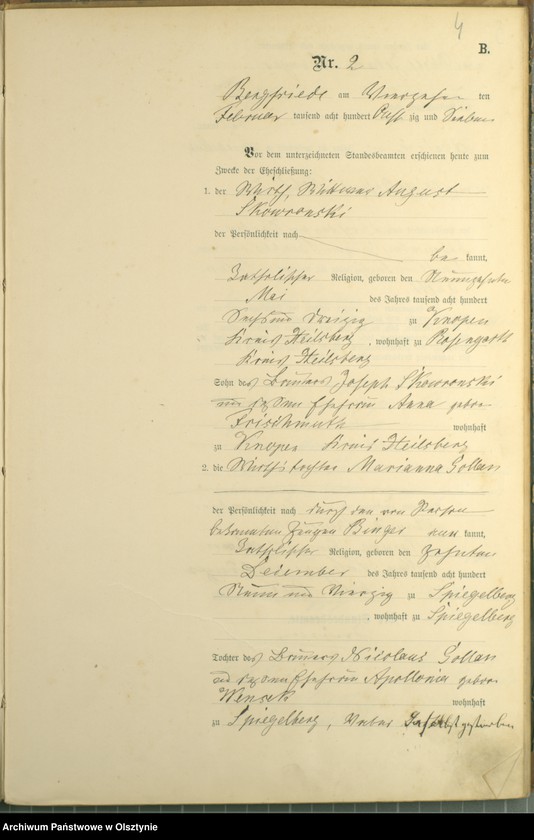 4
B.
Nr. 2
Bergfriede am Vierzehn ten
Februar tausend acht hundert Acht zig und Sieben
Vor dem unterzeichneten Standesbeamten erschienen heute zum
Zwecke der Eheschließung:
1. der Wirth, Wittwer August
Skowronski
der Persönlichkeit nach
be kannt,
Katholischer Religion, geboren den Neunzehnten
Mai des Jahres tausend acht hundert
Sechs und dreizig zu Knopen
Kreis Heilsberg, wohnhaft zu Rosengarth
Kreis Heilsberg
Sohn des Bauers Joseph Skowronski
und dessen Ehefrau Anna gebor
Frischmuth wohnhaft
zu Knopen Kreis Heilsberg
2. die Wirthstochter Marianna Gollan
der Persönlichkeit nach durch den von Person
bekannten Zeugen Binger aner kannt,
Katholischer Religion, geboren den Zehnten
Dezember des Jahres tausend acht hundert
Neun und Vierzig zu Spiegelberg
, wohnhaft zu Spiegelberg
Tochter des Bauers Nicolaus Gollan
und dessen Ehefrau Apollonia gebor
wohnhaft
zu Spiegelberg, Vater daselbst gestorben
Archiwum Państwowe w Olsztynie